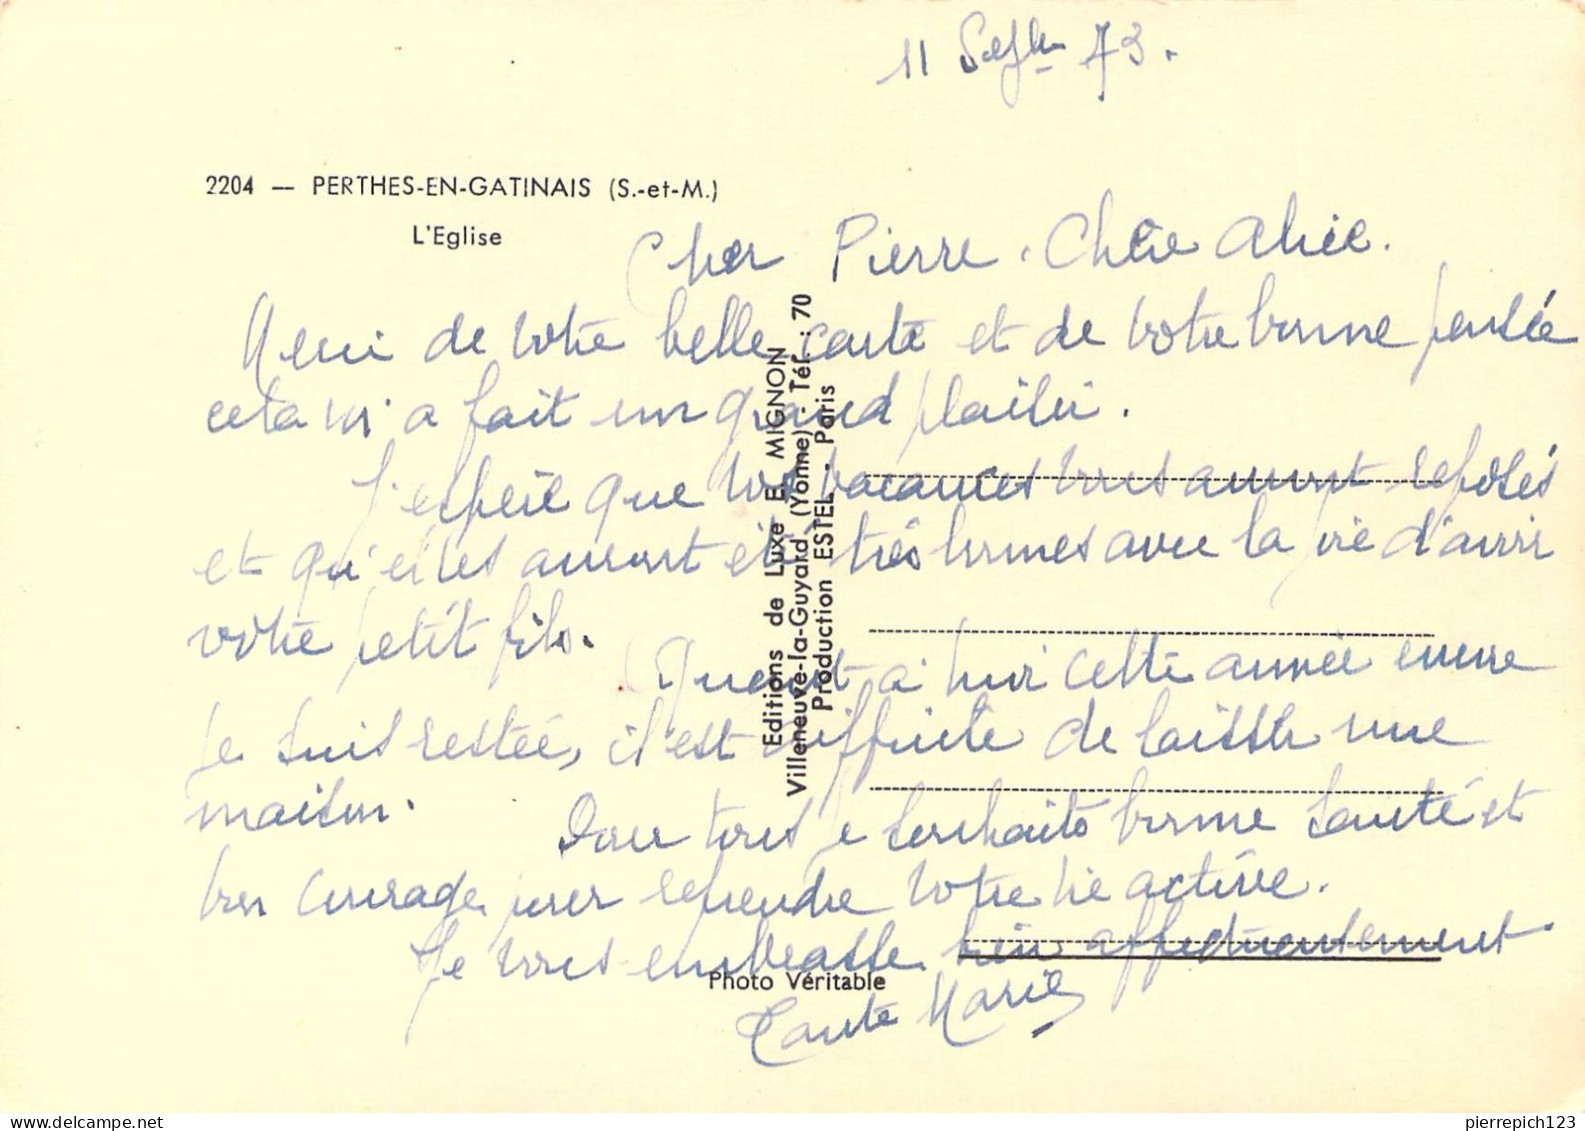 11 Septbre 73.
2204 — PERTHES-EN-GATINAIS (S.-et-M.)
L'Eglise
Cher Pierre. Chère Alice.
Merci de votre belle carte et de votre bonne pensée
cela m'a fait un grand plaisir.
J'espère que vos vacances vous auront reposés
et qu'elles auront été très bonnes avec la joie d'avoir
votre petit fils.
Quant à moi cette année encore
je suis restée, il est difficile de laisser une
maison.
Pour tous je souhaite bonne santé et
bon courage pour reprendre votre vie active.
Je vous embrasse bien affectueusement
Tante Marie
Editions de Luxe E. MIGNON
Villeneuve-la-Guyard (Yonne) - Tél. : 70
Production ESTEL - Paris
Photo Véritable
delcampe.net
pierrepich123